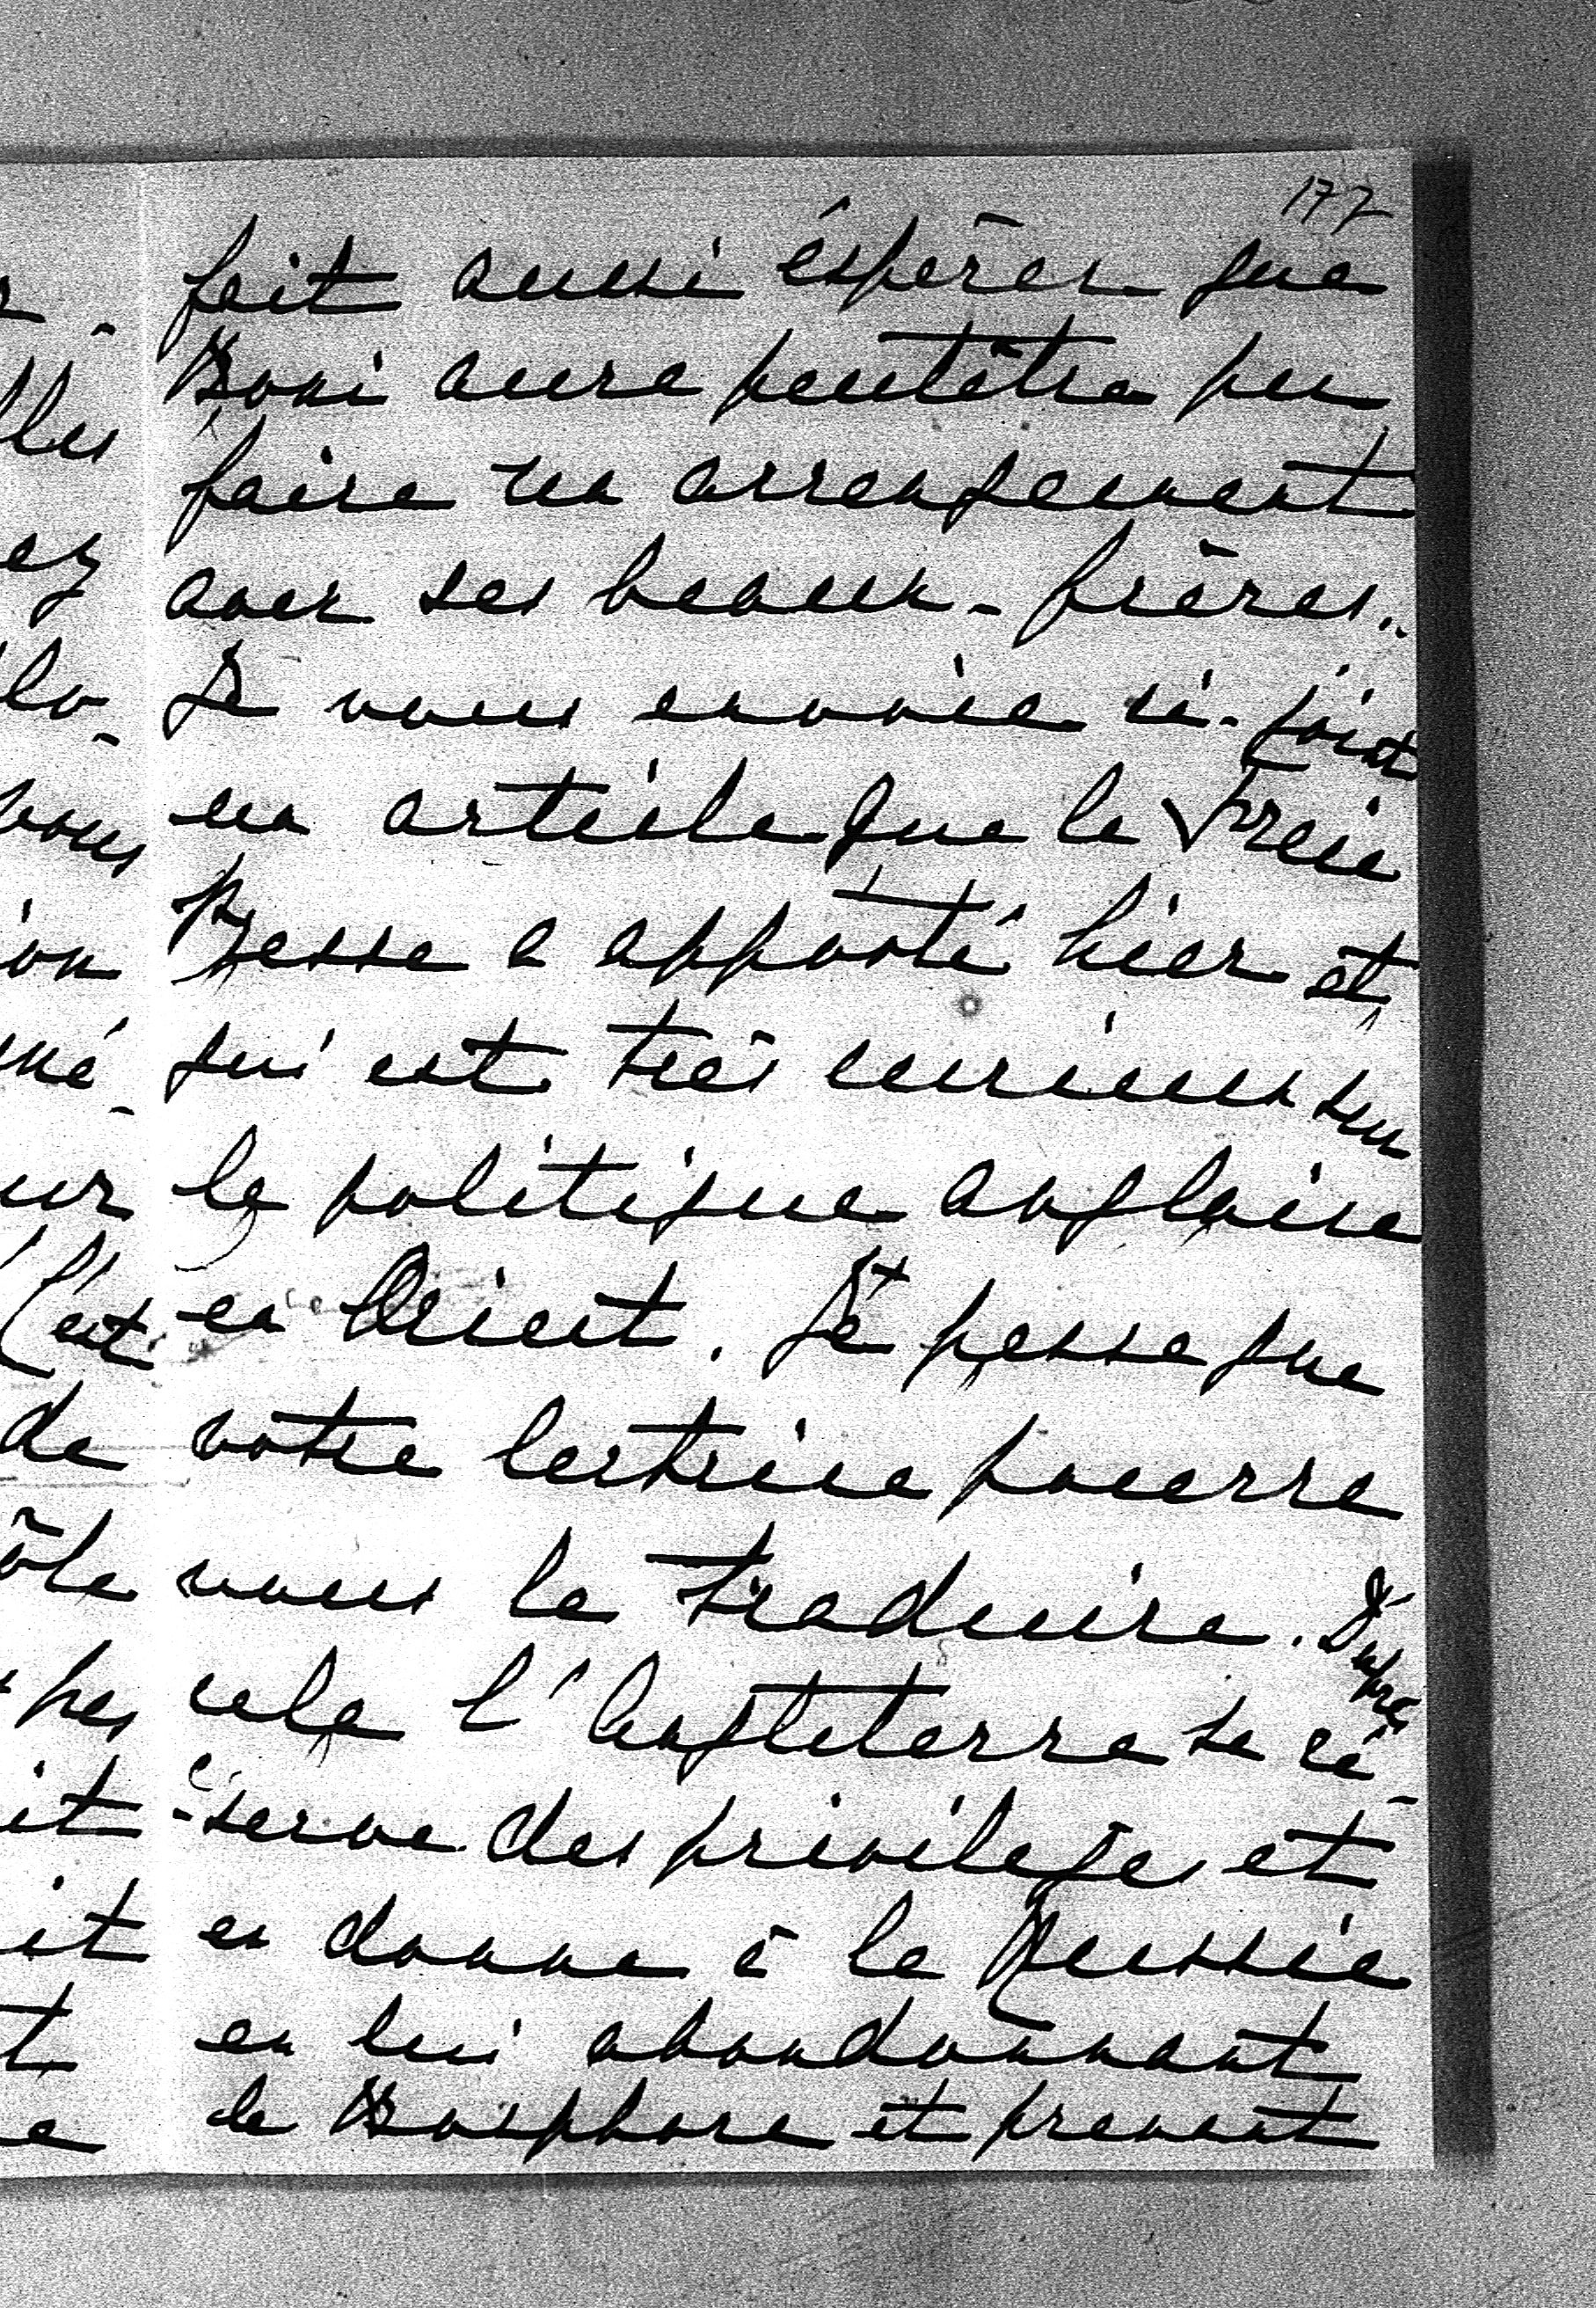 177
fait aussi éspérer que
Boni aura peutêtre pu
faire un arrangement
avec ses beaux-frères..
Je vous envoie ci-joint
un article que la Freie
Presse a apporté hier et
qui est très curieux sur
la politique anglaise
en Orient. Je pense que
votre lectrice pourra
vous le traduire. D'après
cela l'Angleterre se ré-
-serve des privilèges et
en donne à la Russie
en lui abandonnant
le Bosphore et prenant